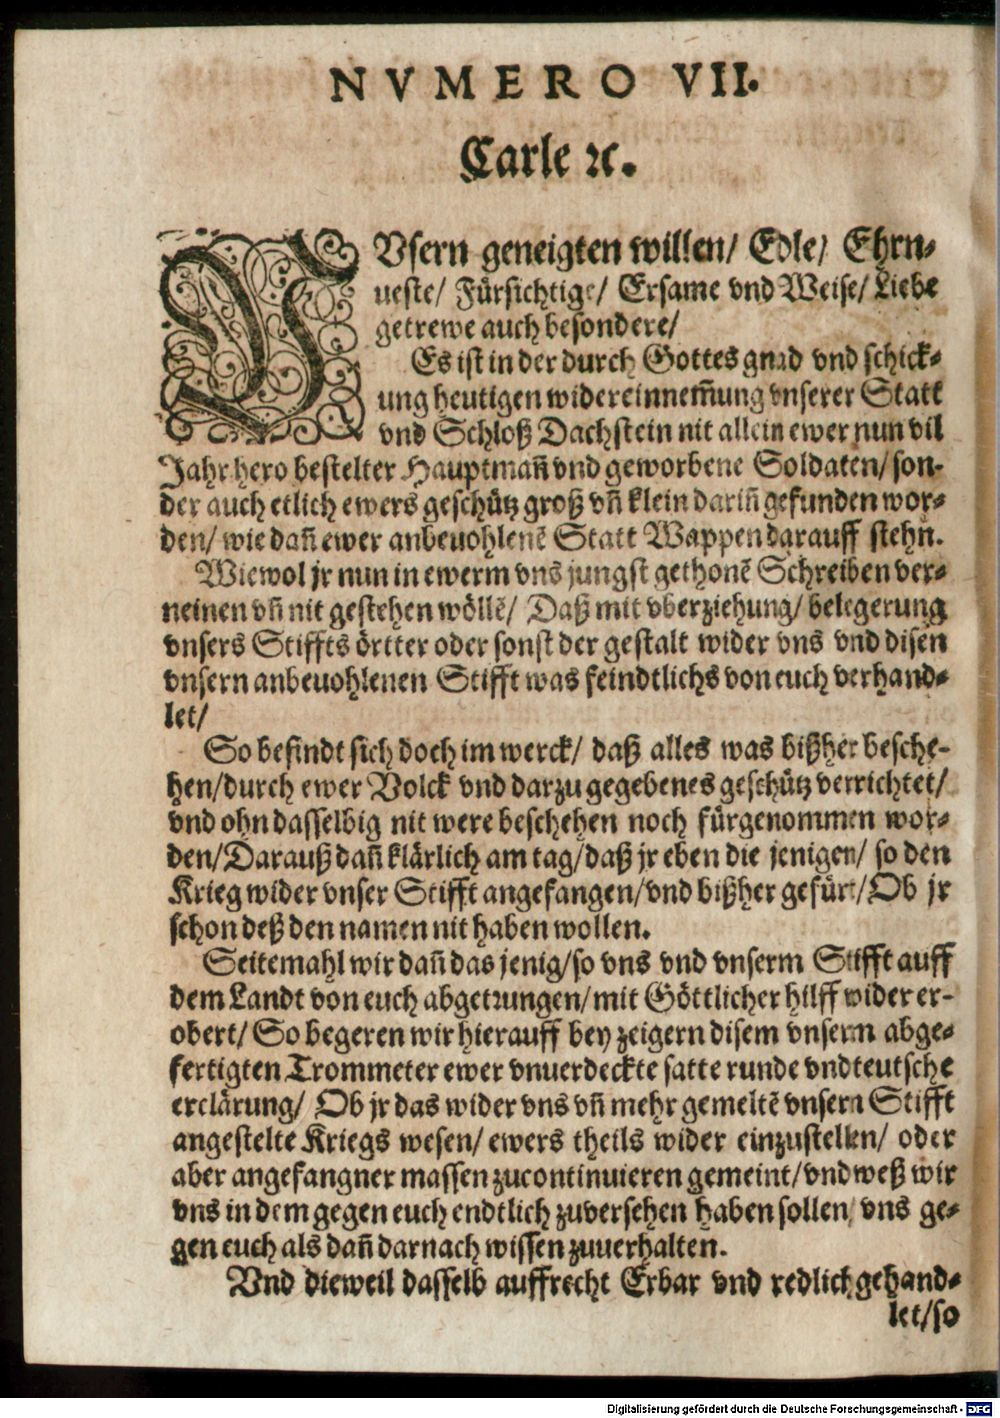 NVMERO VII.
Carle ꝛc.
VNsern geneigten willen/ Edle/ Ehrn⸗
ueste/ Fürsichtige/ Ersame vnd Weise/ Liebe
getrewe auch besondere/
Es ist in der durch Gottes gnad vnd schick⸗
ung heutigen widereinnem̃ung vnserer Statt
vnd Schloß Dachstein nit allein ewer nun vil
Jahr hero bestelter Hauptmañ vnd geworbene Soldaten/ son⸗
der auch etlich ewers geschütz groß vñ klein dariñ gefunden wor⸗
den/ wie dañ ewer anbeuohlenẽ Statt Wappen darauff stehn.
Wiewol jr nun in ewerm vns jungst gethonẽ Schreiben ver⸗
neinen vñ nit gestehen wöllẽ/ Daß mit vberziehung/ belegerung
vnsers Stiffts örtter oder sonst der gestalt wider vns vnd disen
vnsern anbeuohlenen Stifft was feindtlichs von euch verhand⸗
let/
So befindt sich doch im werck/ daß alles was bißher besche⸗
hen/ durch ewer Volck vnd darzu gegebenes geschütz verrichtet/
vnd ohn dasselbig nit were beschehen noch fürgenommen wor⸗
den/ Darauß dañ klärlich am tag/ daß jr eben die jenigen/ so den
Krieg wider vnser Stifft angefangen/ vnd bißher gefürt/ Ob jr
schon deß den namen nit haben wollen.
Seitemahl wir dañ das jenig/ so vns vnd vnserm Stifft auff
dem Landt von euch abgetrungen/ mit Göttlicher hilff wider er⸗
obert/ So begeren wir hierauff bey zeigern disem vnserm abge⸗
fertigten Trommeter ewer vnuerdeckte satte runde vnd teutsche
erclärung/ Ob jr das wider vns vñ mehr gemeltẽ vnsern Stifft
angestelte Kriegs wesen/ ewers theils wider einzustellen/ oder
aber angefangner massen zucontinuieren gemeint/ vnd weß wir
vns in dem gegen euch endtlich zuversehen haben sollen/ vns ge⸗
gen euch als dañ darnach wissen zuuerhalten.
Vnd dieweil dasselb auffrecht Erbar vnd redlich gehand⸗
let/ so
Digitalisierung gefördert durch die Deutsche Forschungsgemeinschaft - DFG